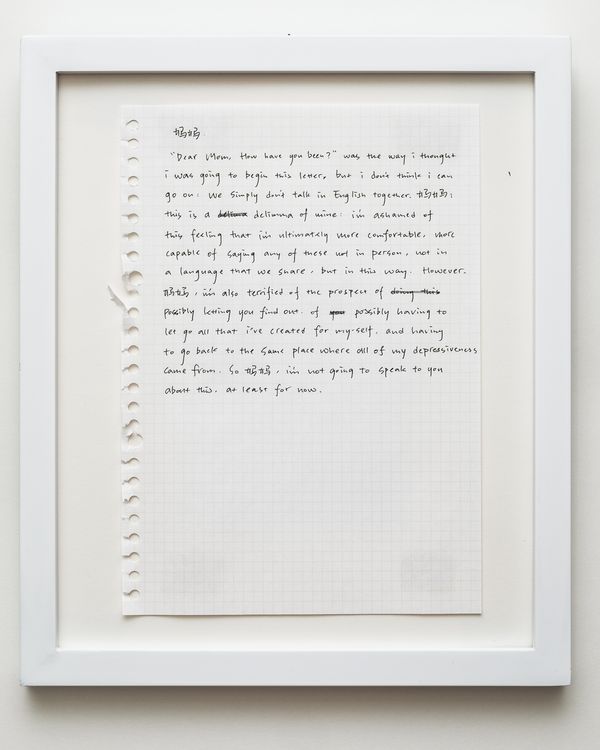 妈妈.
"Dear Mom, How have you been?" was the way i thought
i was going to begin this letter, but i don't think i can
go on: We simply don't talk in English together. 妈妈:
this is a delimma of mine: i'm ashamed of
this feeling that i'm ultimately more comfortable, more
capable of saying any of these not in person, not in
a language that we share, but in this way. However,
妈妈, i'm also terrified of the prospect of doing this
possibly letting you find out. of you possibly having to
let go all that i've created for my-self. and having
to go back to the same place where all of my depressiveness
came from. So 妈妈, i'm not going to speak to you
about this. at least for now.